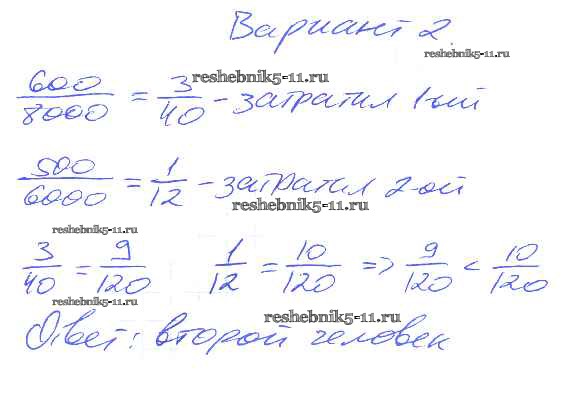 Вариант 2.
reshebnik5-11.ru
600/8000 = 3/40 - затратил 1-ый
reshebnik5-11.ru
500/6000 = 1/12 - затратил 2-ой
reshebnik5-11.ru
reshebnik5-11.ru
3/40 = 9/120 1/12 = 10/120 => 9/120 < 10/120
reshebnik5-11.ru
reshebnik5-11.ru
Ответ: второй человек